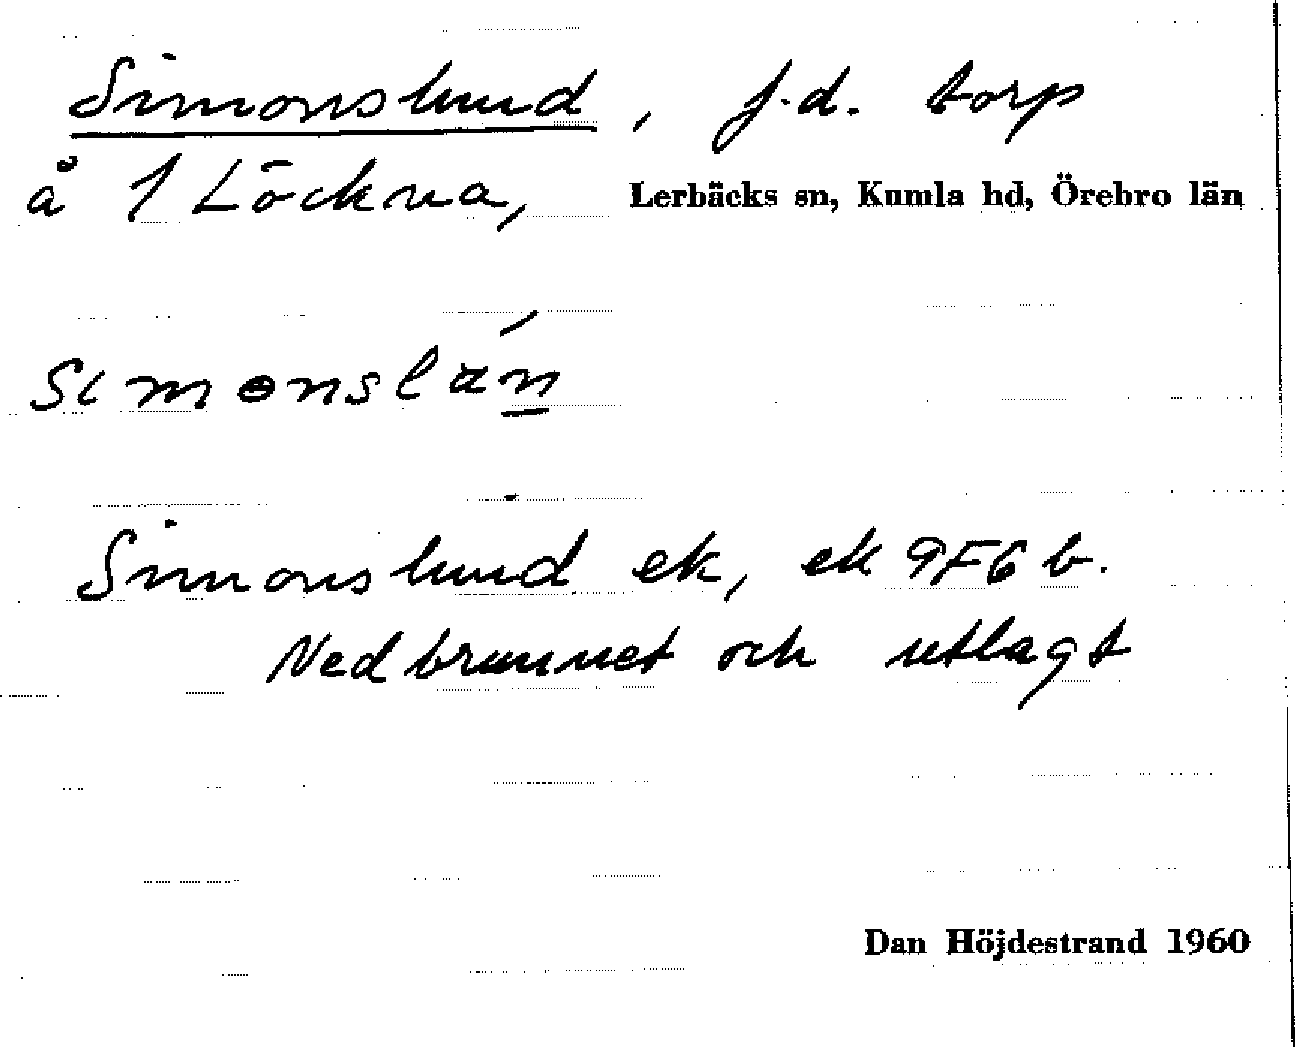 Simonslund, f.d. torp
å 1 Löckna, Lerbäcks sn, Kumla hd, Örebro län
Simonslund ek, ek 9F6 b.
Nedbrunnet och utlagt
Dan Höjdestrand 1960